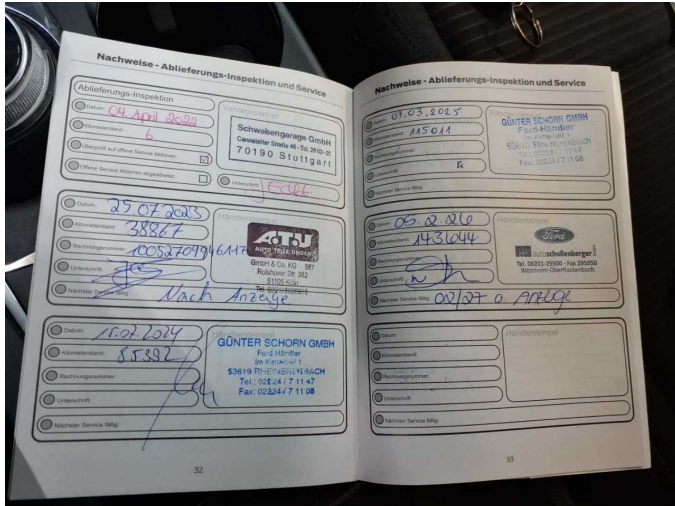 Nachweise - Ablieferungs-Inspektion und Service
Ablieferungs-Inspektion
Datum: 04. April 2022
Kilometerstand: 6
Überprüft auf offene Service Aktionen:
Offene Service Aktionen abgearbeitet:
Vertragspartner
Schwabengarage GmbH
70190 Stuttgart
Unterschrift
Datum: 25.07.2023
Kilometerstand: 38867
Rechnungsnummer:
Unterschrift:
Nächster Service fällig: Nach Anzeige
Händlerstempel
A.T.U
AUTO TEILE UNGER
GmbH & Co. KG 587
Rolshover Str. 382
51105 Köln
Datum: 15.07.2024
Kilometerstand: 85392
Rechnungsnummer:
Unterschrift:
Nächster Service fällig:
Händlerstempel
GÜNTER SCHORN GMBH
Ford Händler
Im Kettelfeld 1
53619 RHEINBREITBACH
Tel.: 02224 / 7 11 47
Fax: 02224 / 7 11 08
32
Nachweise - Ablieferungs-Inspektion und Service
Datum: 07.03.2025
Kilometerstand: 115011
Unterschrift:
Nächster Service fällig:
GÜNTER SCHORN GMBH
Ford-Händler
Datum: 05.2.26
Kilometerstand:
Rechnungsnummer:
Unterschrift:
Nächster Service fällig: 02/27 o. Anzeige
Händlerstempel
Ford
autoschollenberger
Tel. 06201-25500 · Fax 295050
Weinheim-Oberflockenbach
Datum:
Kilometerstand:
Rechnungsnummer:
Unterschrift:
Nächster Service fällig:
Händlerstempel
33